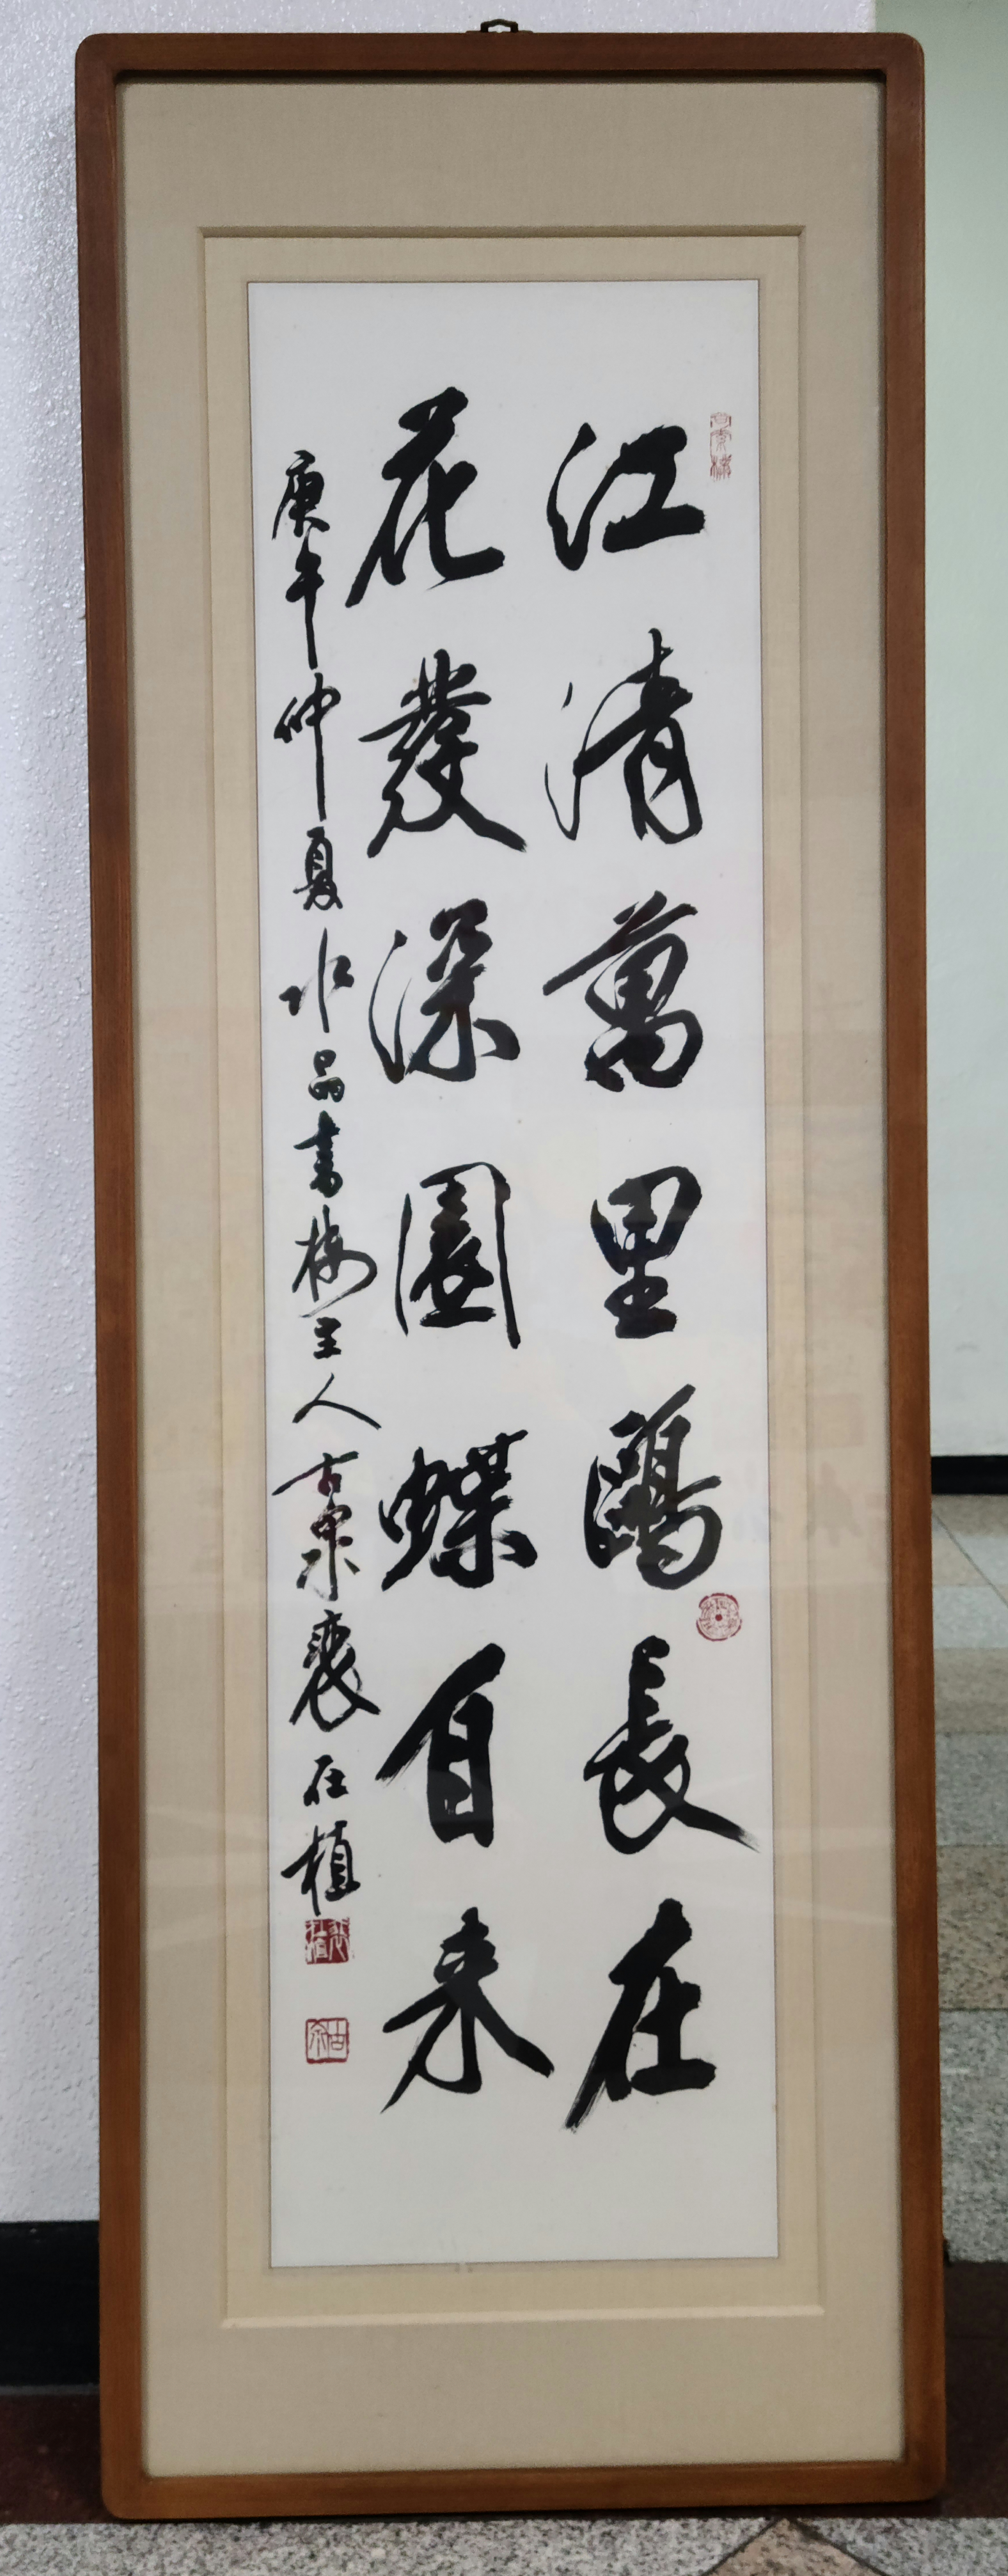 江清萬里鷗長在
花發深園蝶自来
庚午仲夏水品書樓主人古泉裵在植